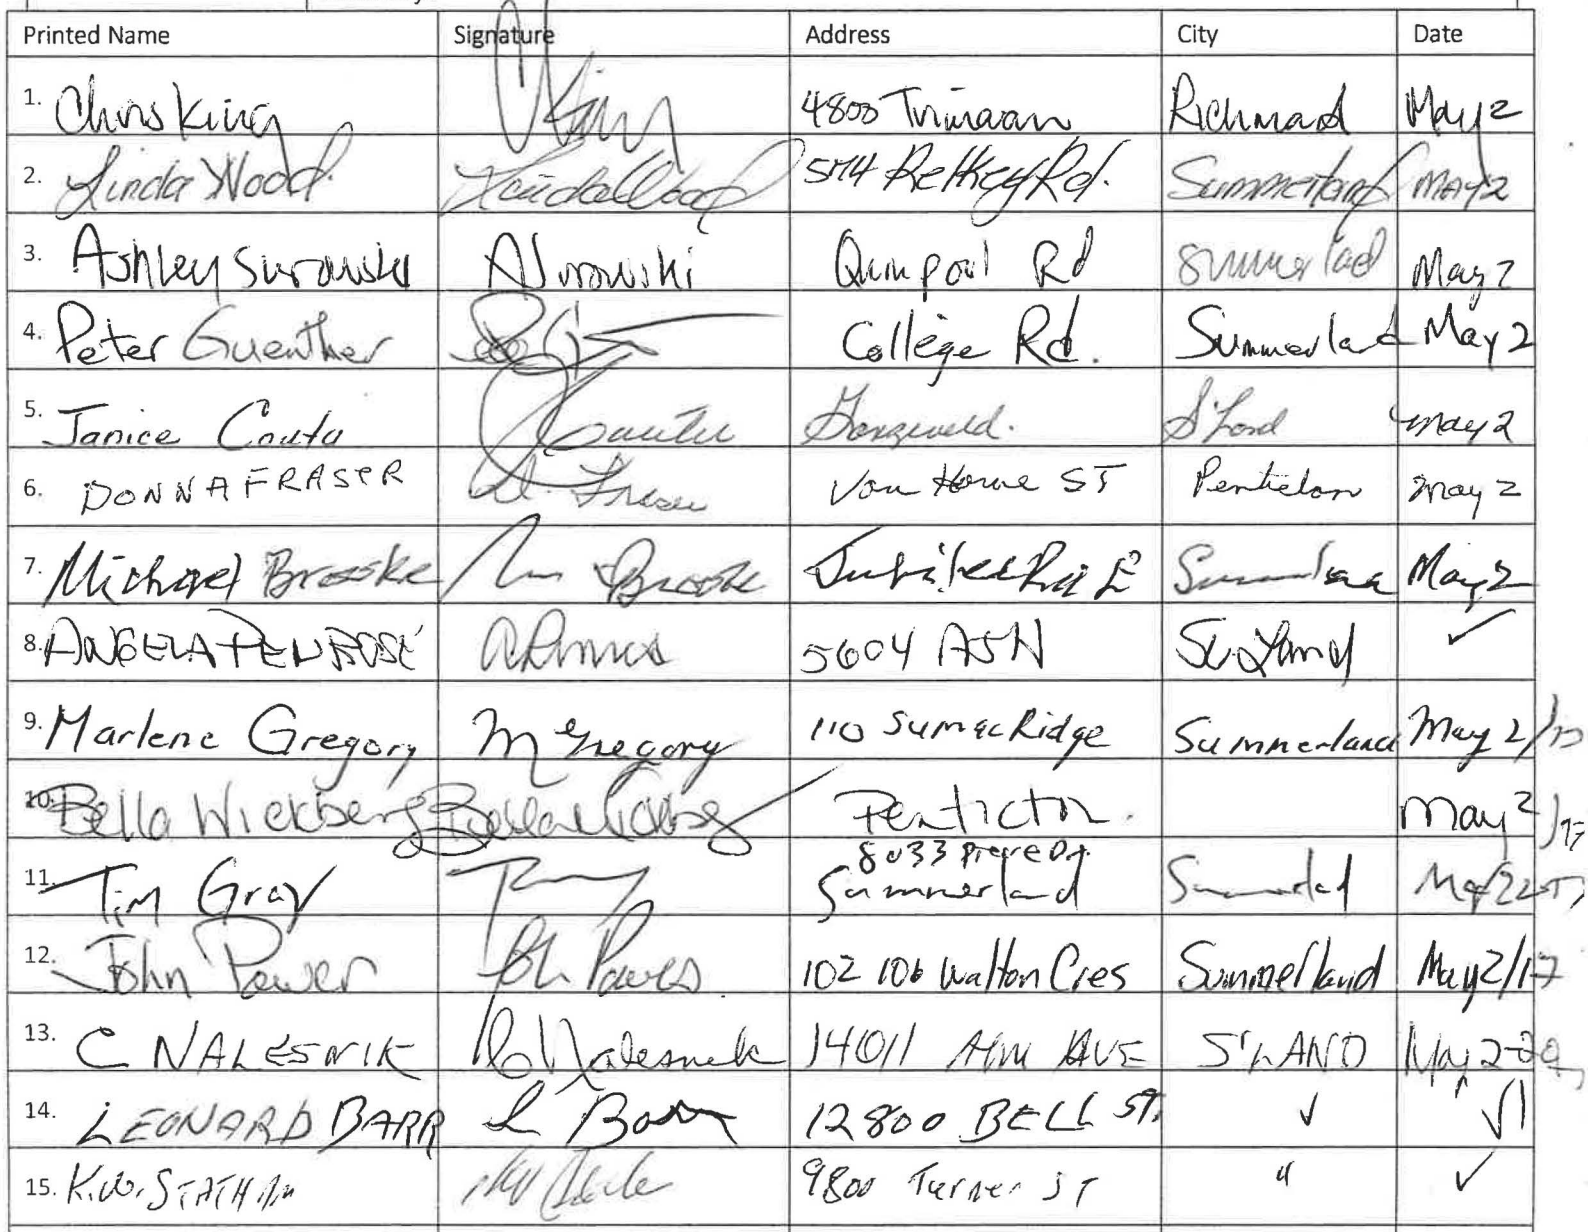 Printed Name Signature Address City Date
1. Chris King CKing 4800 Richmond May 2
2. Linda Wood Linda Wood Rd. Summerland May 2
3. Ashley Surowski ASurowski Quinpool Rd Summerland May 2
4. Peter Guenther College Rd. Summerland May 2
5. Janice May 2
6. DONNA FRASER D. Fraser Van Horne ST Penticton May 2
7. Michael Brooke Brooke Jubilee Rd E May 2
8. ANGELA PENROSE 5604 ASH ✓
9. Marlene Gregory M Gregory 110 Sumac Ridge Summerland May 2/17
10. Bella Wickberg Penticton. May 2/17
8033
11. Tim Gray Summerland Summerland
12. John Power John Power 102 106 Walton Cres Summerland May 2/17
13. C NALESNIK C Nalesnik 14011 AVE S'LAND May 2
14. LEONARD BARR L Barr 12800 BELL ST. ✓
15. K.W. STATHAM 9800 Turner ST " ✓